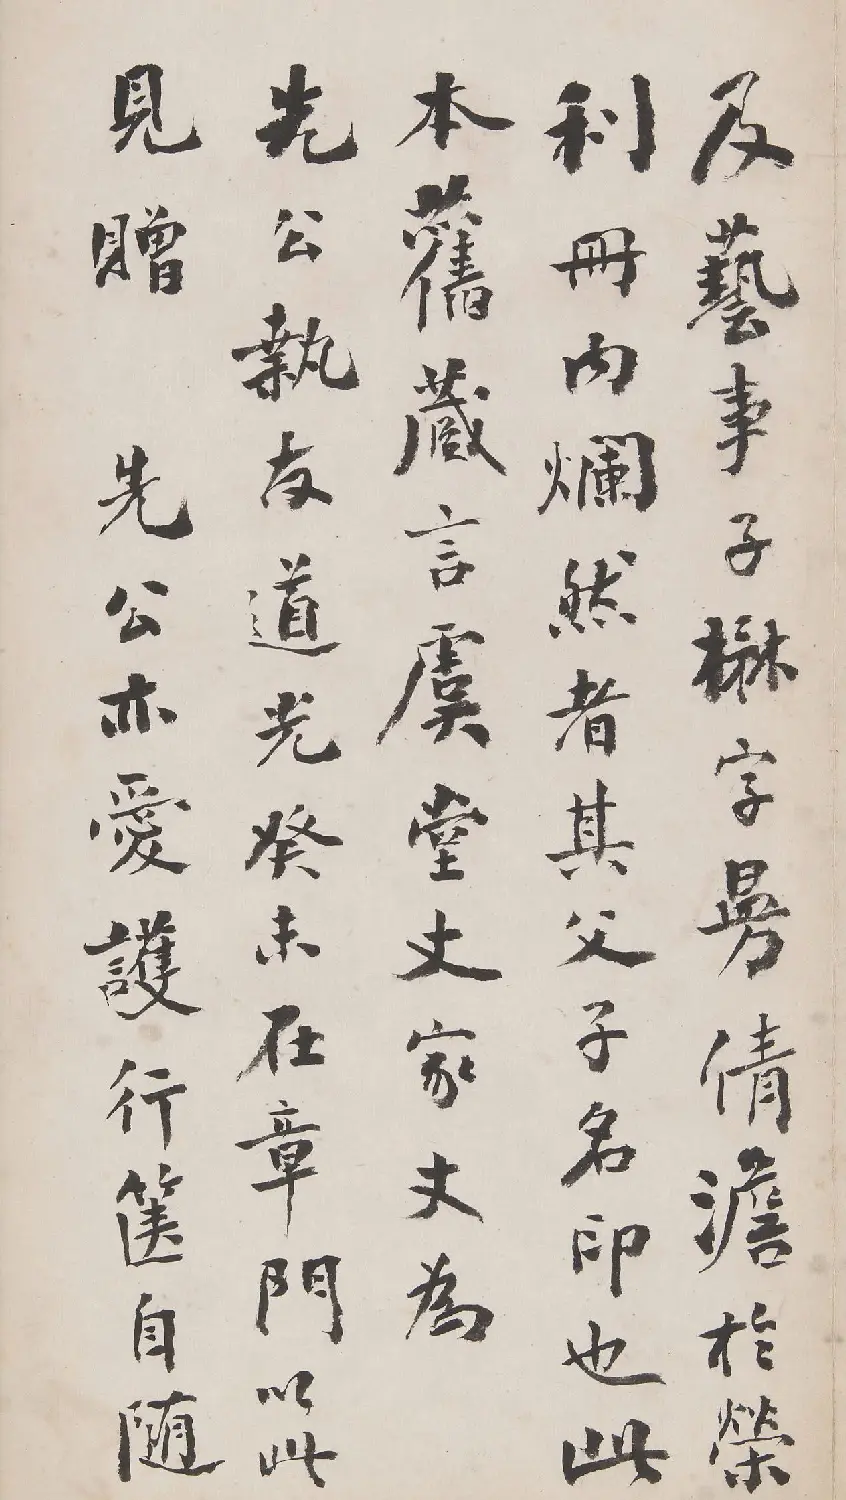 及藝事子楙字曼倩澹於榮
利冊內爛然者其父子名印也此
本舊藏言虞堂丈家丈為
先公執友道光癸未在章門以此
見贈 先公亦愛護行篋自随